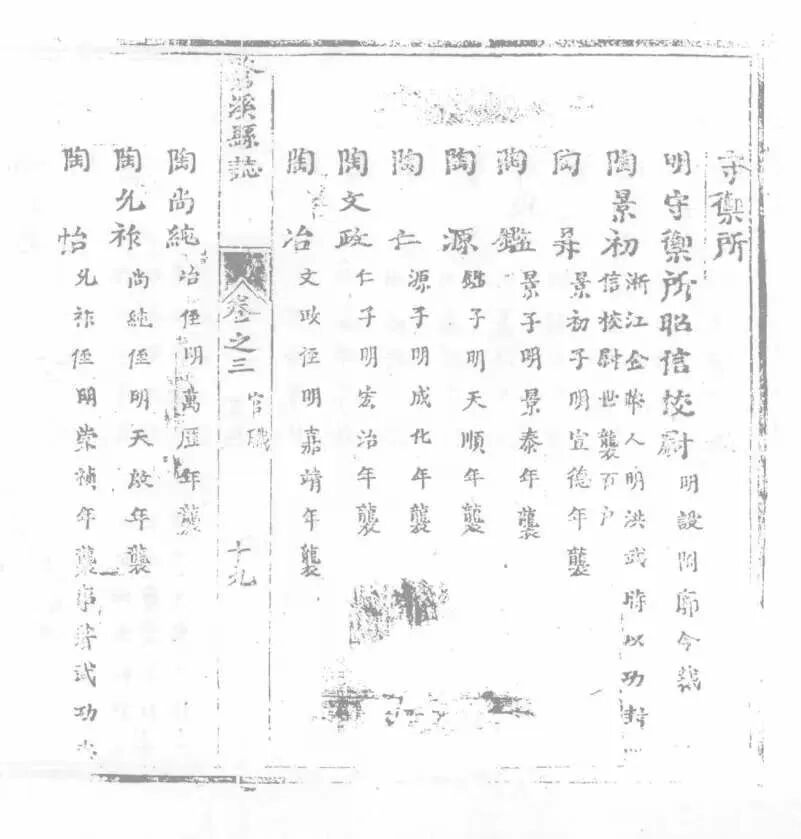 守禦所
明守禦所昭信校尉 明設今裁
陶景初 浙江金華人明洪武時以功封
信校尉世襲百户
陶昇 景初子明宣德年襲
陶鑑 景子明景泰年襲
陶源 鑑子明天順年襲
陶仁 源子明成化年襲
陶文政 仁子明宏治年襲
陶冶 文政侄明嘉靖年襲
溪縣誌 卷之三 官職 十九
陶尚純 冶侄明萬歷年襲
陶允祚 尚純侄明天啟年襲
陶怡 允祚侄明崇禎年襲事詳武功